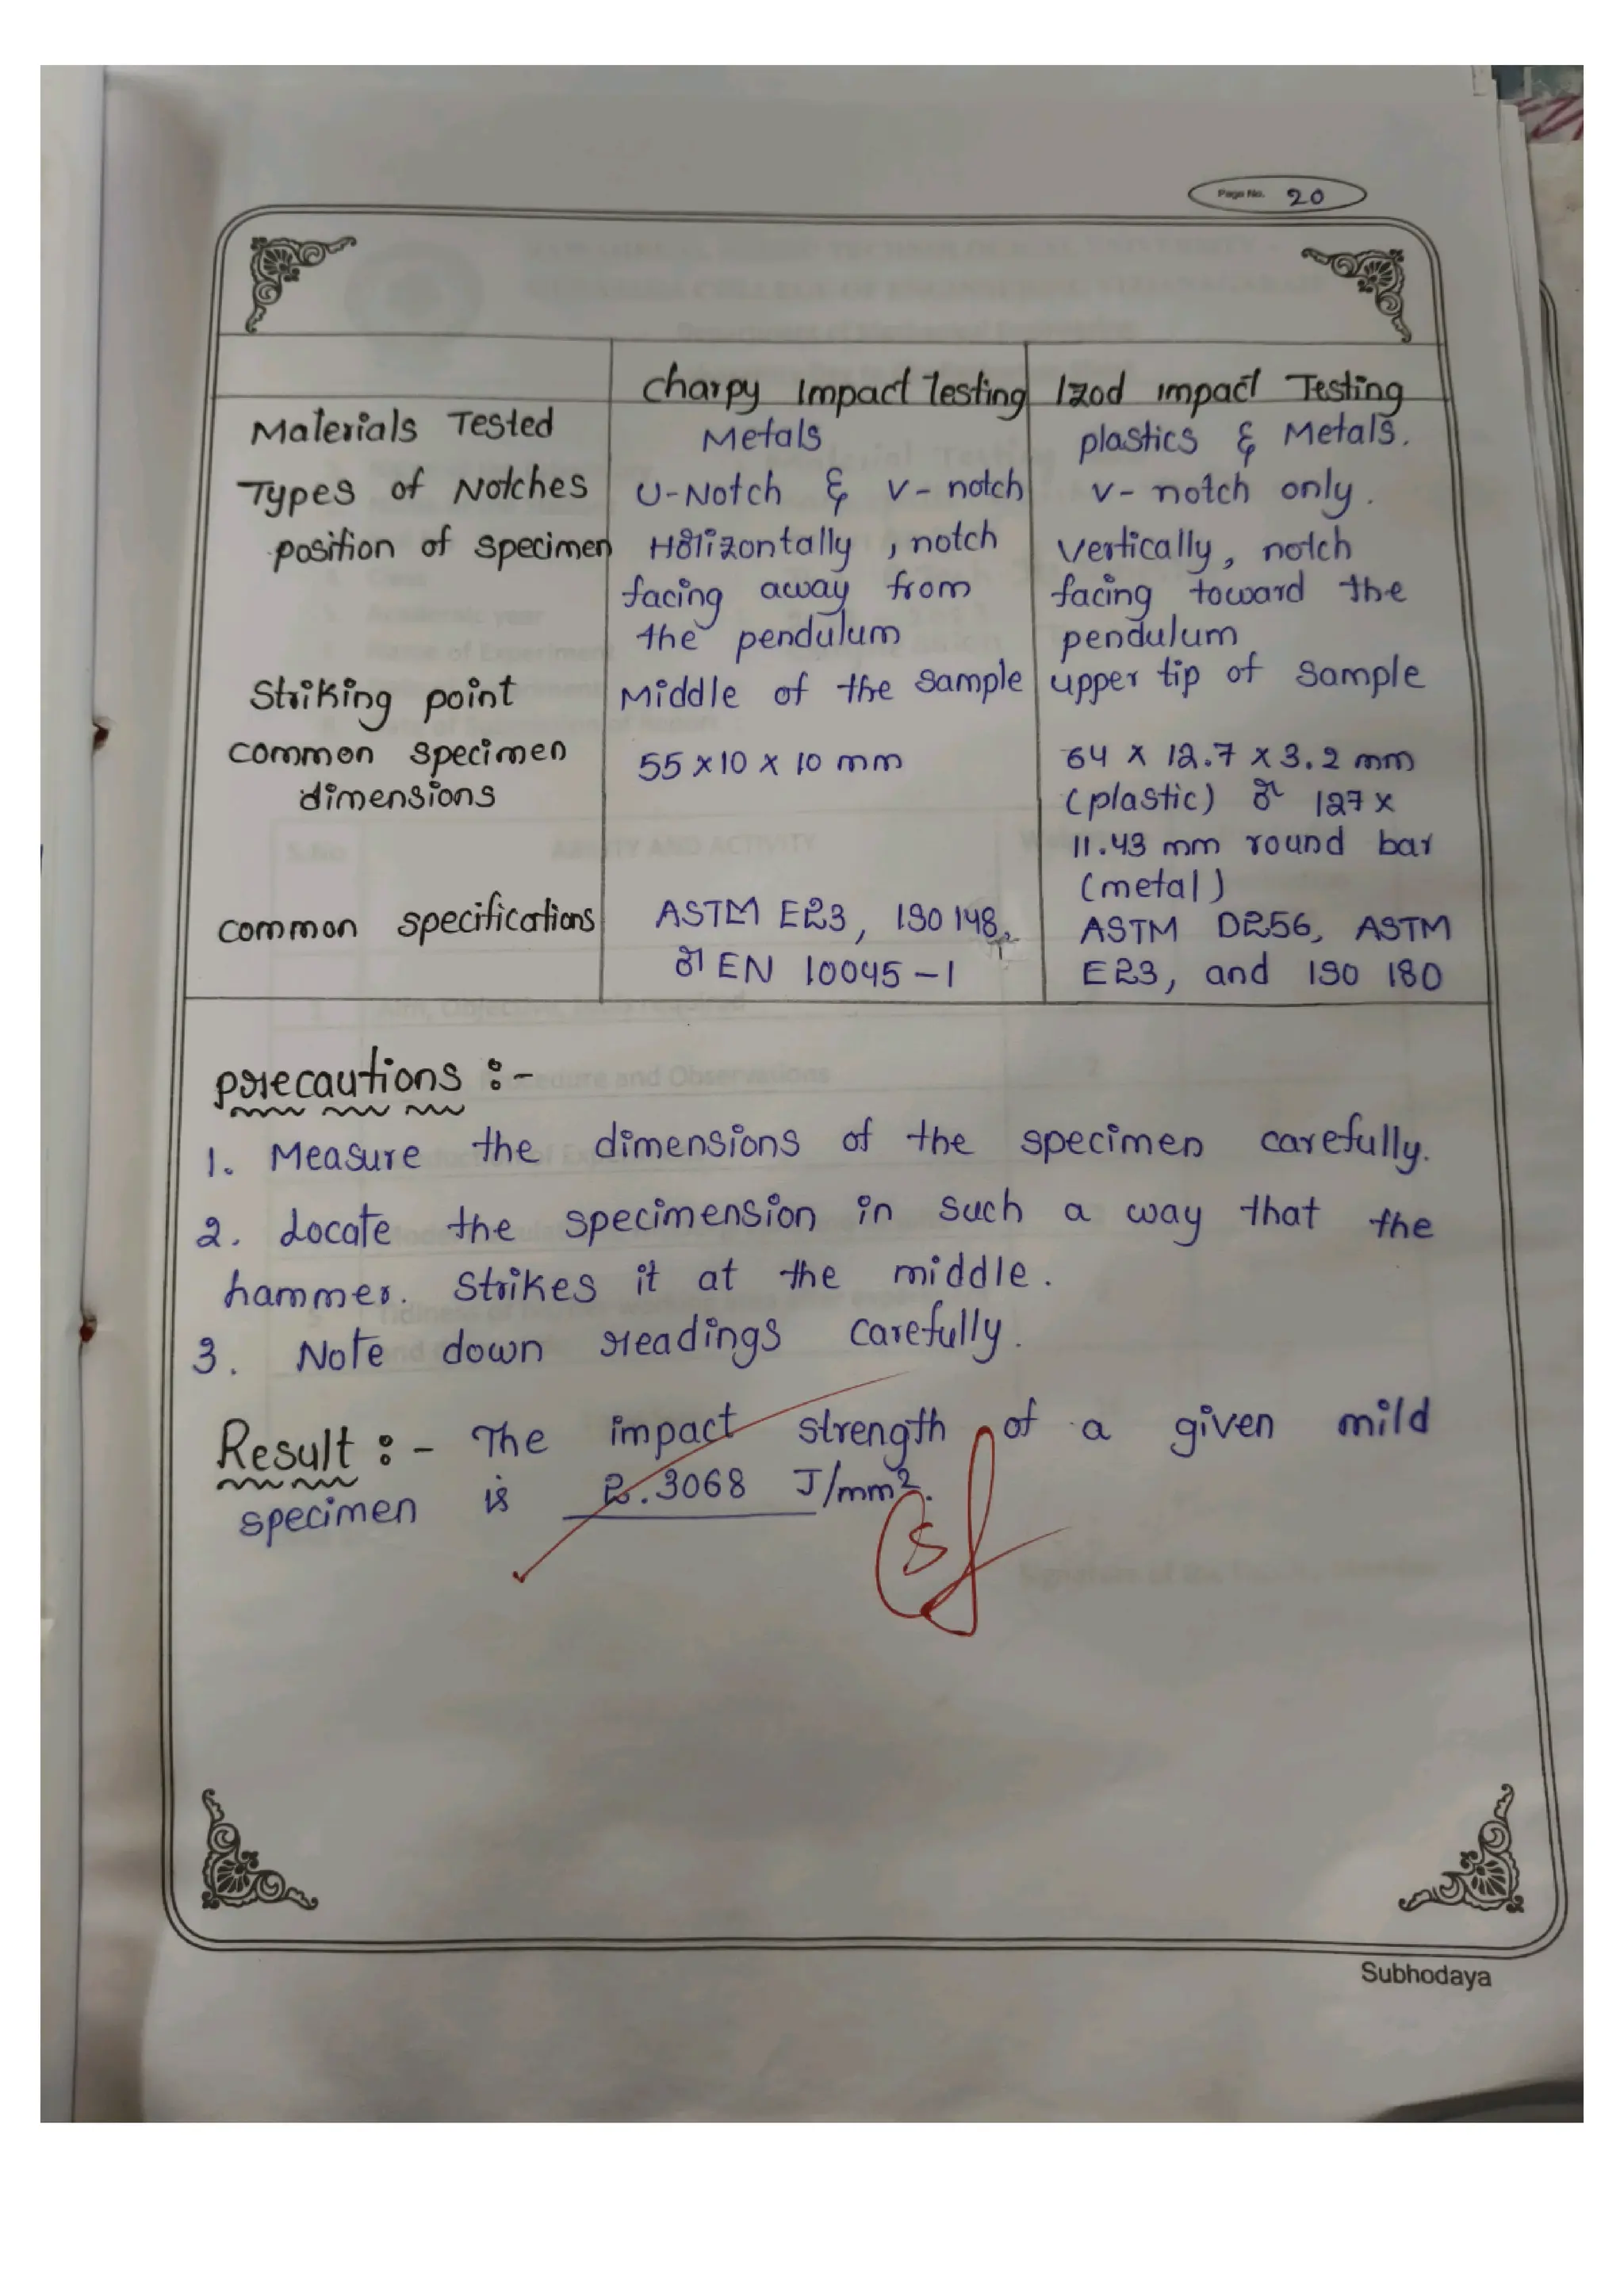 Page No. 20
Charpy Impact Testing Izod impact Testing
Materials Tested Metals plastics & Metals.
Types of Notches U-Notch & V-notch V-notch only.
position of specimen Horizontally, notch Vertically, notch
facing away from facing toward the
the pendulum pendulum
Striking point Middle of the sample upper tip of sample
common specimen 55 x 10 x 10 mm 64 x 12.7 x 3.2 mm
dimensions (plastic) or 127 x
11.43 mm round bar
(metal)
common specifications ASTM E23, ISO 148, ASTM D256, ASTM
or EN 10045-1 E23, and ISO 180
precautions :-
1. Measure the dimensions of the specimen carefully.
2. Locate the specimension in such a way that the
hammer. strikes it at the middle.
3. Note down readings carefully.
Result :- The impact strength of a given mild
specimen is 2.3068 J/mm².
Subhodaya